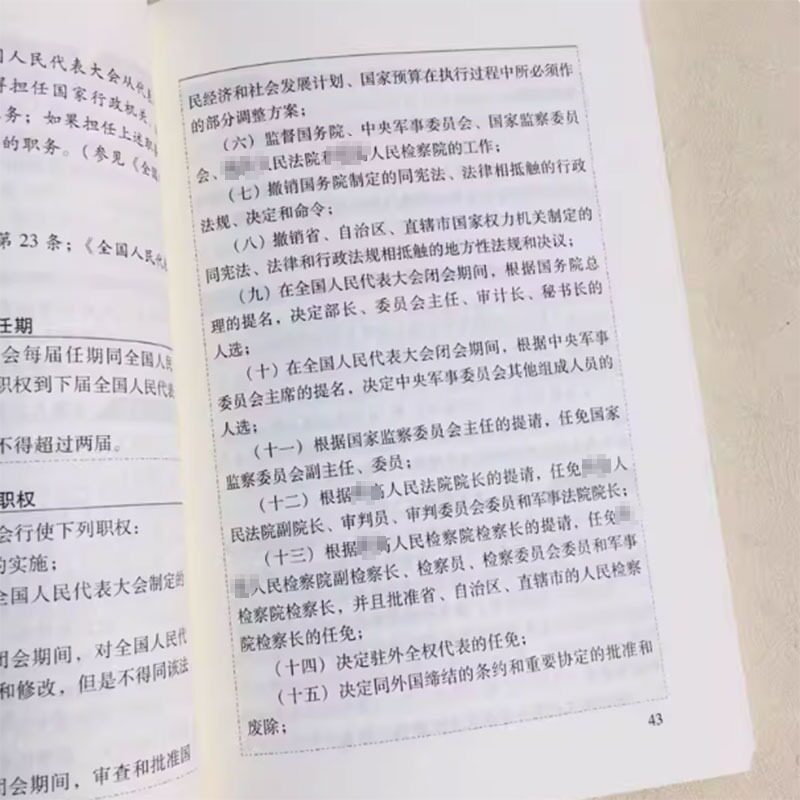 国人民代表大会从代表
得担任国家行政机关、
务；如果担任上述职
的职务。（参见《全国
第 23 条；《全国人民代
任期
会每届任期同全国人民
职权到下届全国人民代表
不得超过两届。
职权
会行使下列职权：
的实施；
全国人民代表大会制定的
闭会期间，对全国人民代
和修改，但是不得同该法
闭会期间，审查和批准国
民经济和社会发展计划、国家预算在执行过程中所必须作
的部分调整方案；
（六）监督国务院、中央军事委员会、国家监察委员
会、民法院和人民检察院的工作；
（七）撤销国务院制定的同宪法、法律相抵触的行政
法规、决定和命令；
（八）撤销省、自治区、直辖市国家权力机关制定的
同宪法、法律和行政法规相抵触的地方性法规和决议；
（九）在全国人民代表大会闭会期间，根据国务院总
理的提名，决定部长、委员会主任、审计长、秘书长的
人选；
（十）在全国人民代表大会闭会期间，根据中央军事
委员会主席的提名，决定中央军事委员会其他组成人员的
人选；
（十一）根据国家监察委员会主任的提请，任免国家
监察委员会副主任、委员；
（十二）根据人民法院院长的提请，任免人
民法院副院长、审判员、审判委员会委员和军事法院院长；
（十三）根据人民检察院检察长的提请，任免
人民检察院副检察长、检察员、检察委员会委员和军事
检察院检察长，并且批准省、自治区、直辖市的人民检察
院检察长的任免；
（十四）决定驻外全权代表的任免；
（十五）决定同外国缔结的条约和重要协定的批准和
废除；
43